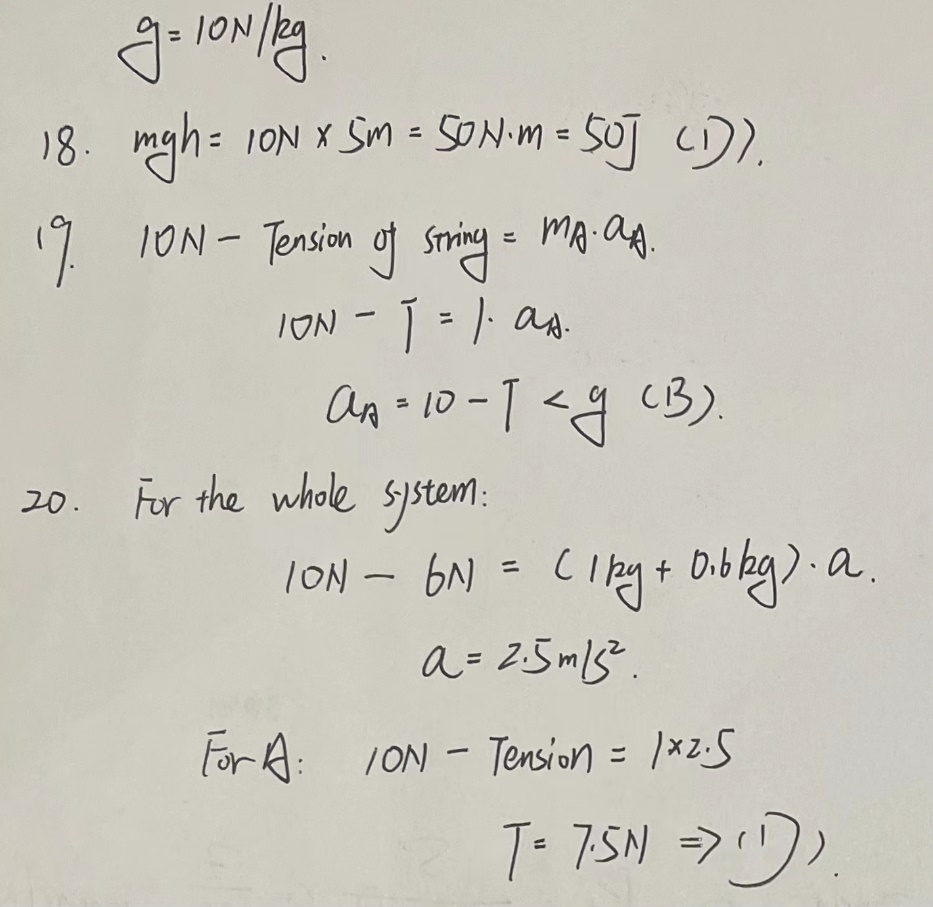 g = 10N/kg.
18. mgh = 10N × 5m = 50N·m = 50J (D).
19. 10N - Tension of string = mA·aA.
10N - T = 1·aA.
aA = 10 - T < g (B).
20. For the whole system:
10N - 6N = (1kg + 0.6kg)·a.
a = 2.5m/s².
For A: 10N - Tension = 1×2.5
T = 7.5N ⇒ (D).